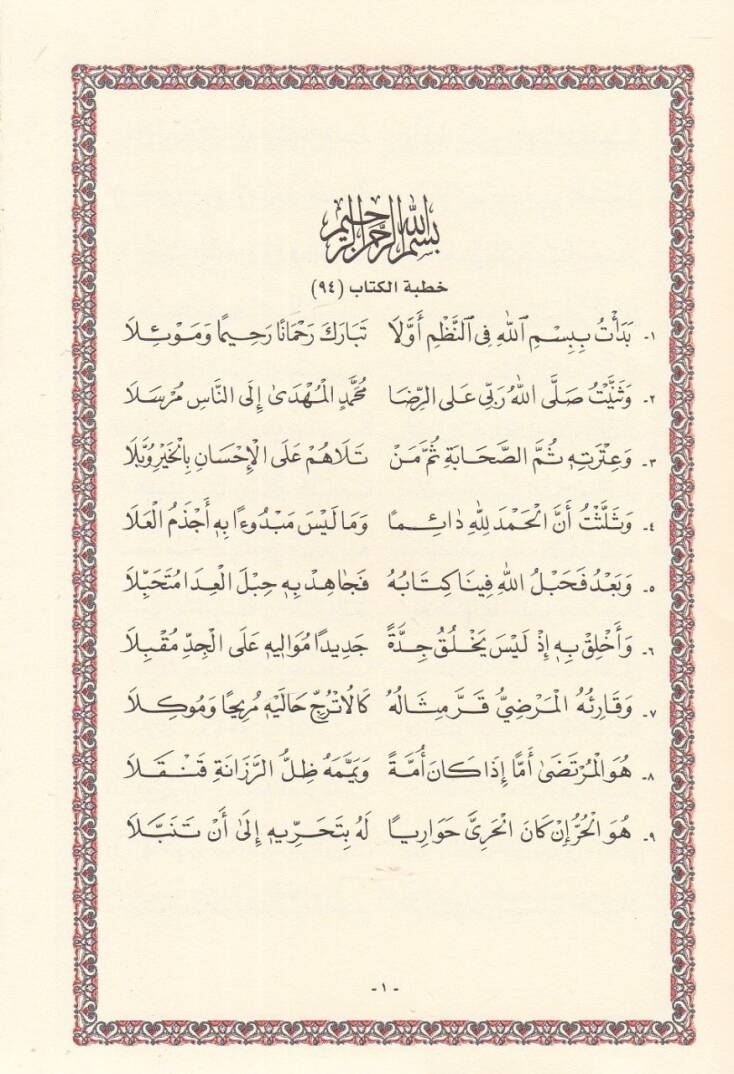 بسم الله الرحمن الرحيم
خطبة الكتاب (٩٤)
١- بَدَأْتُ بِبِسْمِ ٱللَّهِ فِى ٱلنَّظْمِ أَوَّلَا تَبَارَكَ رَحْمَانًا رَحِيمًا وَمَوْئِلَا
٢- وَثَنَّيْتُ صَلَّى اللَّهُ رَبِّى عَلَى الرِّضَا مُحَمَّدٍ الْمُهْدَىٰ إِلَى النَّاسِ مُرْسَلَا
٣- وَعِتْرَتِهِ ثُمَّ الصَّحَابَةِ ثُمَّ مَنْ تَلَاهُمْ عَلَى الْإِحْسَانِ بِالْخَيْرِ وُبَّلَا
٤- وَثَلَّثْتُ أَنَّ الْحَمْدَ لِلَّهِ دَائِمًا وَمَا لَيْسَ مَبْدُوءًا بِهِ أَجْذَمُ الْعَلَا
٥- وَبَعْدُ فَحَبْلُ اللَّهِ فِينَا كِتَابُهُ فَجَاهِدْ بِهِ حِبْلَ الْعِدَا مُتَحَبِّلَا
٦- وَأَخْلِقْ بِهِ إِذْ لَيْسَ يَخْلُقُ جِدَّةً جَدِيدًا مُوَالِيهِ عَلَى الْجِدِّ مُقْبِلَا
٧- وَقَارِئُهُ الْمَرْضِيُّ قَرَّ مِثَالُهُ كَالُاتْرُجِّ حَالَيْهِ مُرِيحًا وَمُوكِلَا
٨- هُوَ الْمُرْتَضَىٰ أَمًّا إِذَا كَانَ أُمَّةً وَيَمَّمَهُ ظِلُّ الرَّزَانَةِ قَنْقَلَا
٩- هُوَ الْحُرُّ إِنْ كَانَ الْحَرِىَّ حَوَارِيًا لَهُ بِتَحَرِّيهِ إِلَىٰ أَنْ تَنَبَّلَا
- ١ -